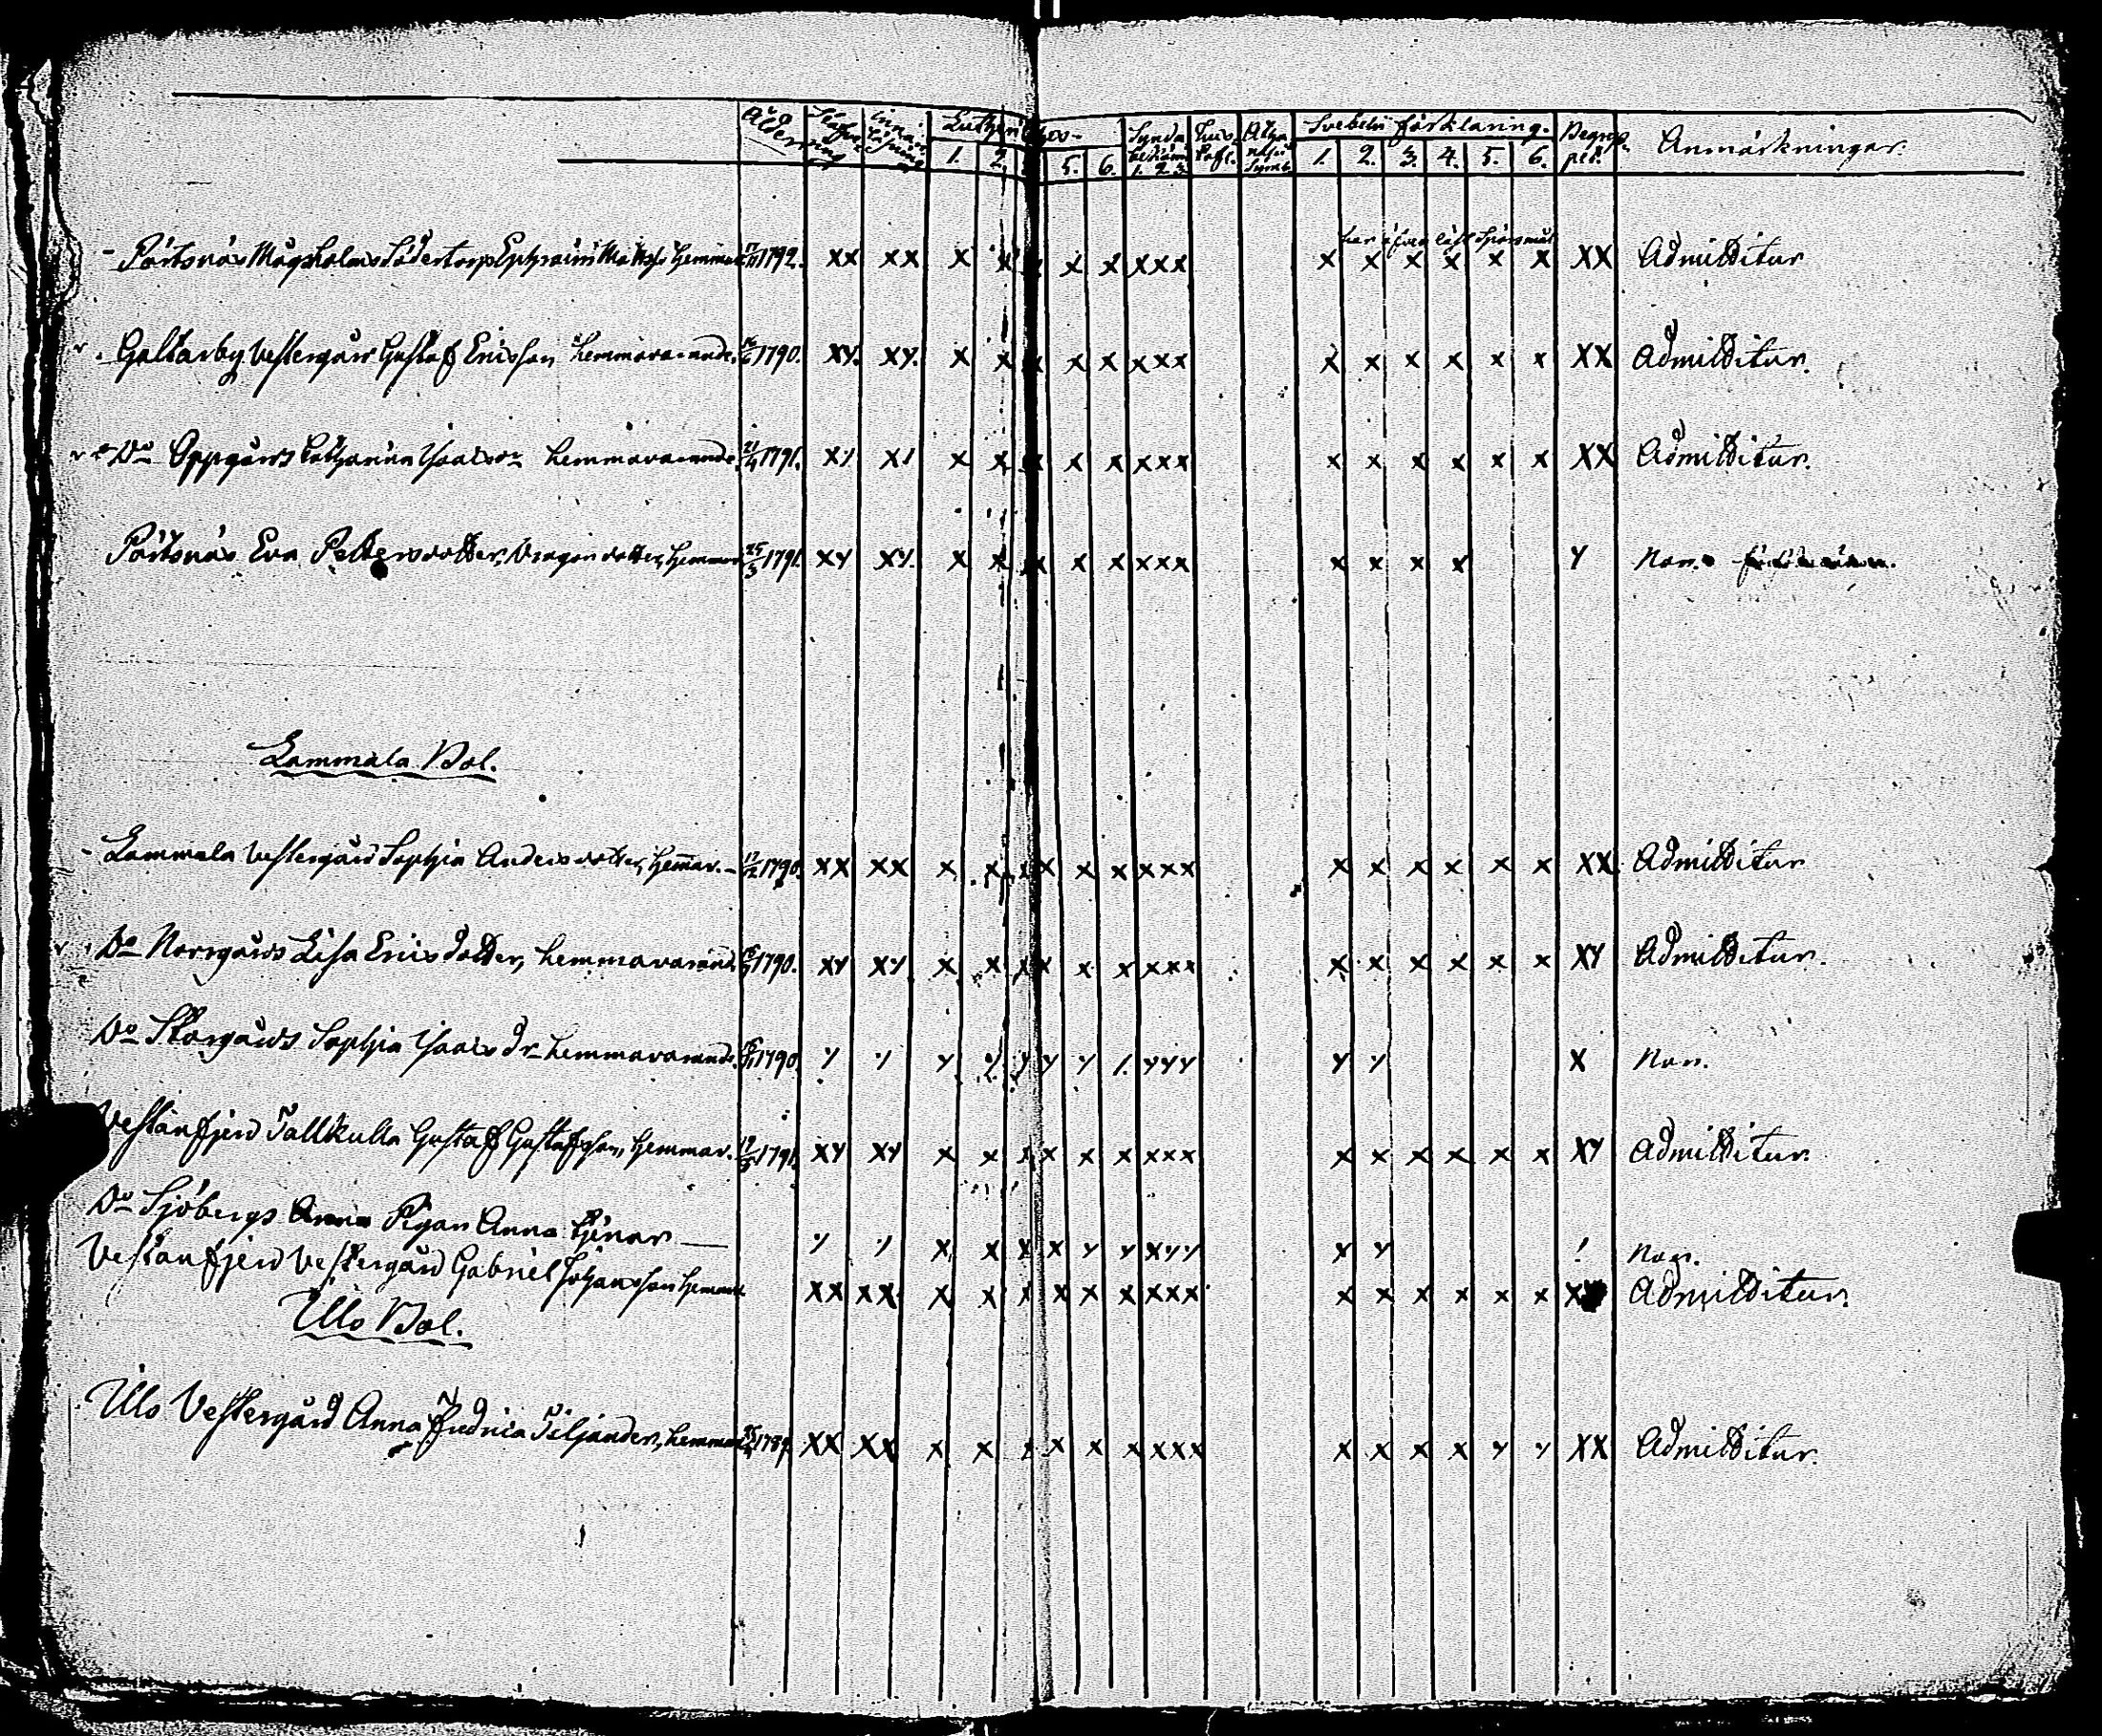 Ålder Stafning Innan Läsning Lutheri 1. 2. 5. 6. Synda 1. 2. 3. Hus Tafl. Atha Symb. Svebelii förklaring. 1. 2. 3. 4. 5. 6. Begrep Anmärkningar.
har äfven läst Spörsmål
Pörtsnäs Södertorp Ephraim Mattss. hemmav. 1792. XX XX X X X X XXX X X X X X X XX Admittitur
Galtarby Vestergård Gustaf Ericsson hemmavarande. 1790. XY. XY. X X X X X XXX X X X X X X XX Admittitur.
Do Oppgårds Catharina Isacsdr hemmavarande 1791. XY XY X X X X X XXX X X X X X X XX Admittitur.
Pörtsnäs Eva Pettersdotter, hemmav. 25/3 1791. XY XY. X X X X X XXX X X X X Y Non.
Lammala Bol.
Lammala Vestergård Sophia Andersdotter, hemmav. 1790. XX XX X X X X X X XXX X X X X X X XX Admittitur
Do Norrgårds Lisa Ericsdotter, hemmavarande 1790. XY XY X X X X X X XXX X X X X X X XY Admittitur.
Do Storgårds Sophia Isacsdr hemmavarande. 1790 Y Y Y Y Y Y Y / YYY Y Y X Non.
Vestanfjerd Tallkulla Gustaf Gustafsson, hemmav. 1791. XY XY X X X X X X XXX X X X X X X XY Admittitur.
Do Sjöbergs Pigan Anna tjenar Y Y X X X X Y Y XYY X Y / Non.
Vestanfjerd Vestergård Gabriel Johansson hemmav. XX XX X X X X X X XXX X X X X X X Admittitur.
Ulo Bol.
Ulo Vestergård Anna Fredrica Siljander, hemmav. XX XX X X X X X X XXX X X X X Y Y XX Admittitur.